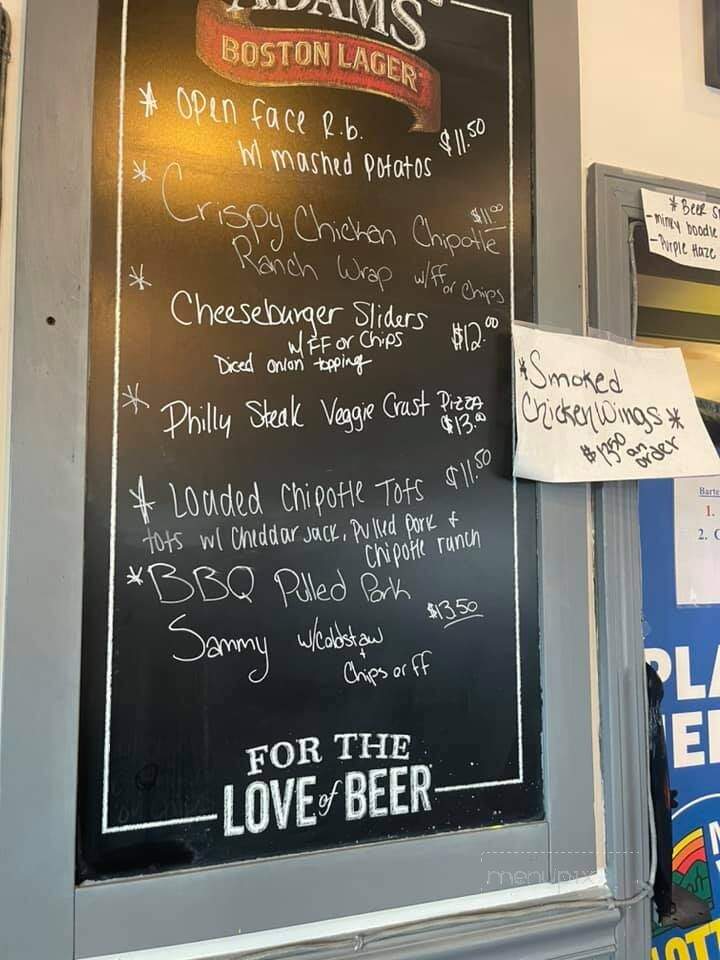 ADAMS
BOSTON LAGER
* OPEN face R.b. $11.50
w/ mashed Potatos
* Crispy Chicken Chipotle $11.00
Ranch Wrap w/ff or Chips
* Cheeseburger Sliders $12.00
w/ FF or Chips
Diced onion topping
* Philly Steak Veggie Crust Pizza
$13.00
* Loaded Chipotle Tots $11.50
tots w/ Cheddar Jack, Pulled Pork +
Chipotle ranch
* BBQ Pulled Pork
Sammy w/Coldslaw $13.50
+
Chips or ff
FOR THE
LOVE of BEER
* Beer S
- minky boodle
- Purple Haze
* Smoked
Chicken Wings *
$13.50 an
order
Barte
1.
2. C
PLA
menupix